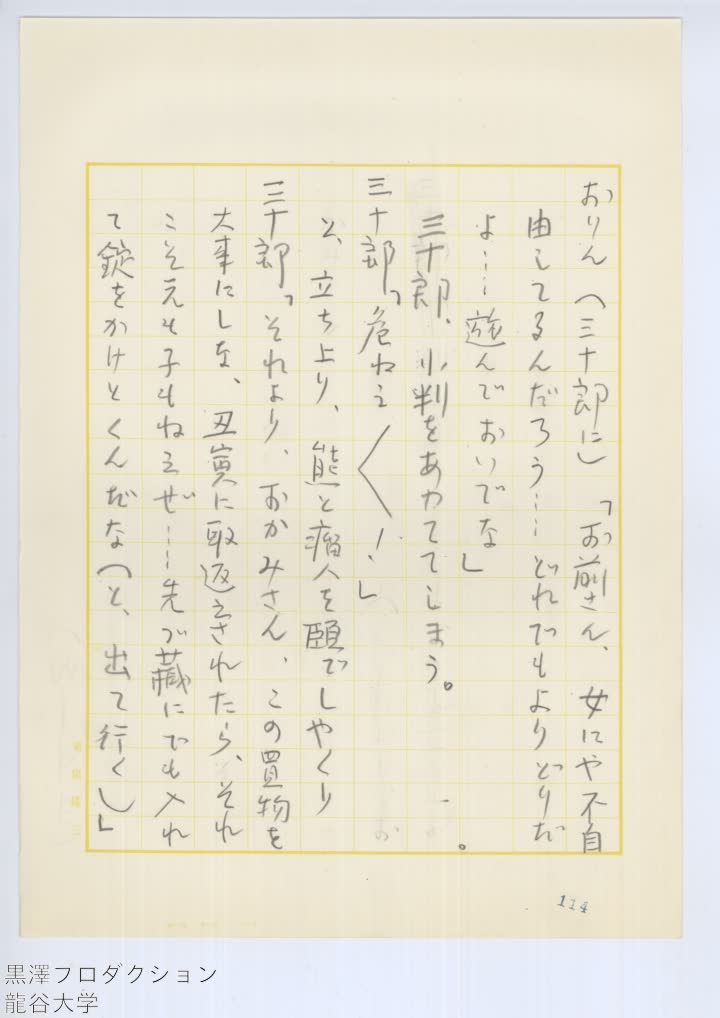 おりん（三十郎に）「お前さん、女にや不自
由してるんだろう……どれでもよりどりだ
よ……遊んでおいでな」
三十郎、小判をあわててしまう。
三十郎「危ねえ〱！」
と、立ち上り、熊と瘤人を頤でしやくり
三十郎「それより、おかみさん、この買物を
大事にしな、丑寅に取返えされたら、それ
こそ元も子もねえぜ……先づ蔵にでも入れ
て錠をかけとくんだな（と、出て行く）」
114
黒澤プロダクション
龍谷大学